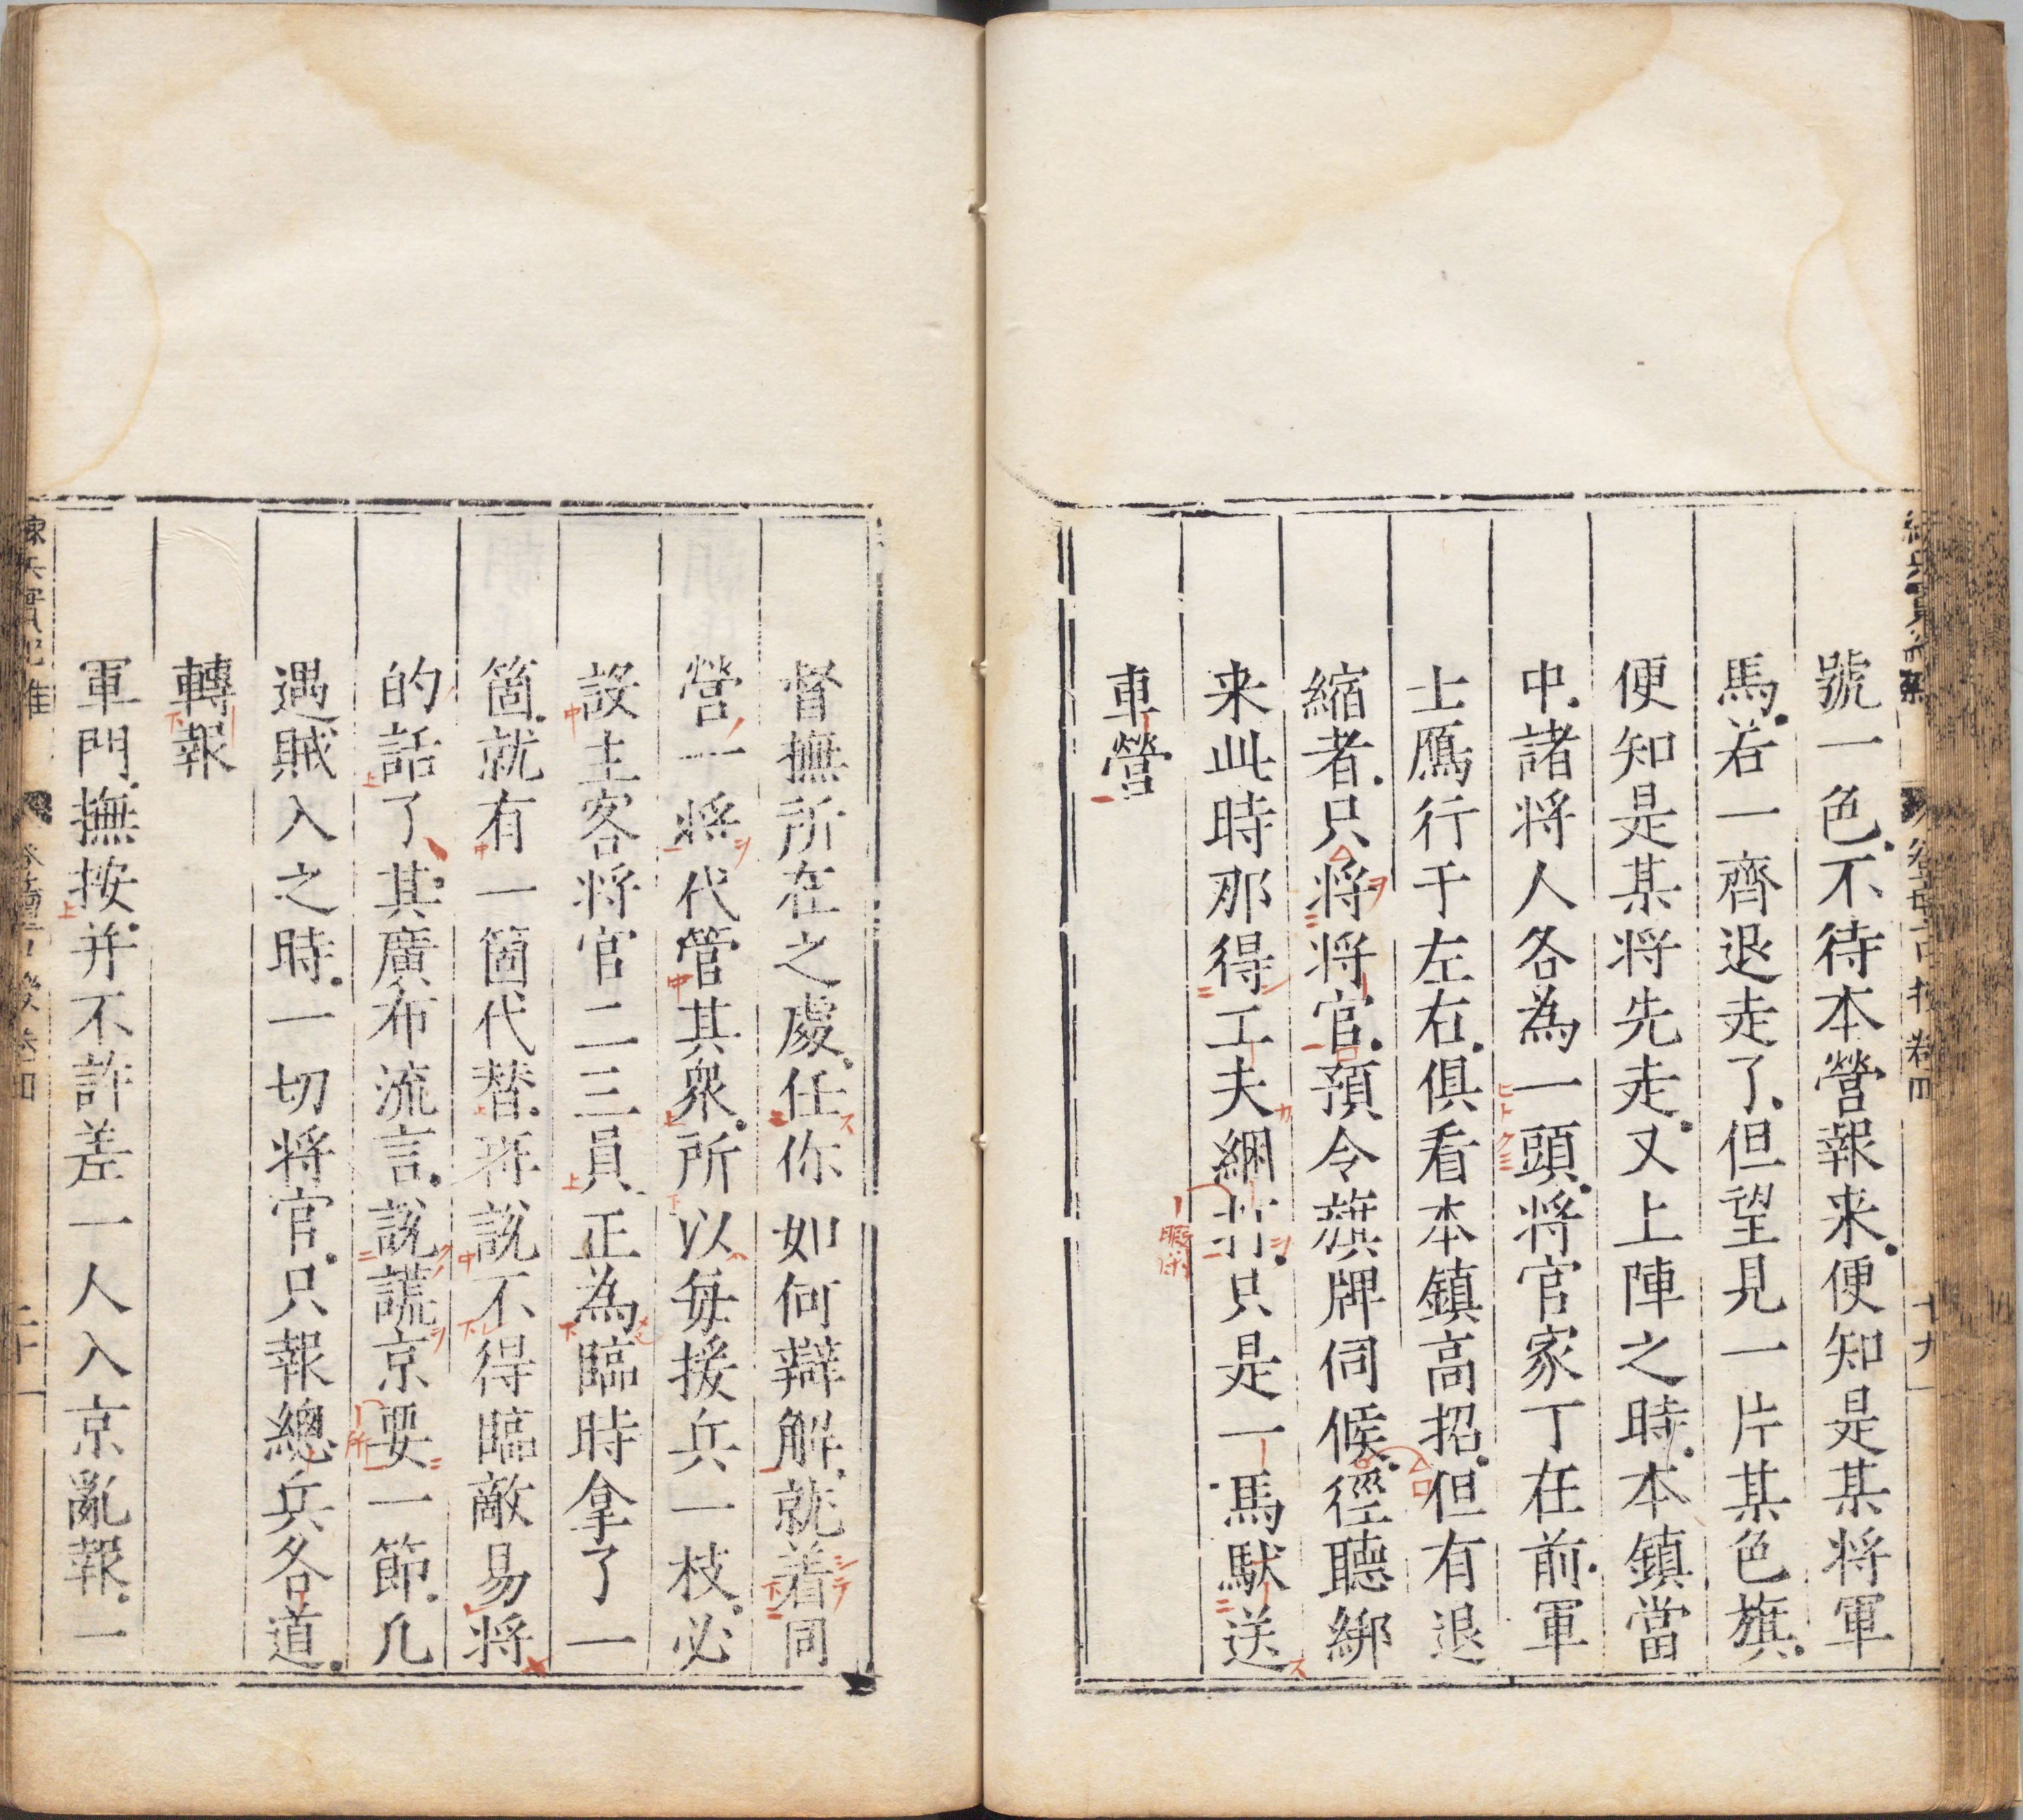 號一色不待本營報来便知是某将軍
馬若一齊退走了但望見一片某色旗
便知是某将先走又上陣之時本鎮當
中諸将人各為一頭将官家丁在前軍
士鴈行于左右俱看本鎮高招但有退
縮者只将将官預令旗牌伺候徑聽綁
来此時那得工夫綑打只是一馬馱送
車營
督撫所在之處任你如何辯解就着同
營一将代管其衆所以每接兵一枝必
設主客将官二三員正為臨時拿了一
箇就有一箇代替再說不得臨敵易将
的話了其廣布流言説謊京要一節凡
遇賊入之時一切将官只報總兵各道
轉報
軍門撫按并不許差一人入京亂報一